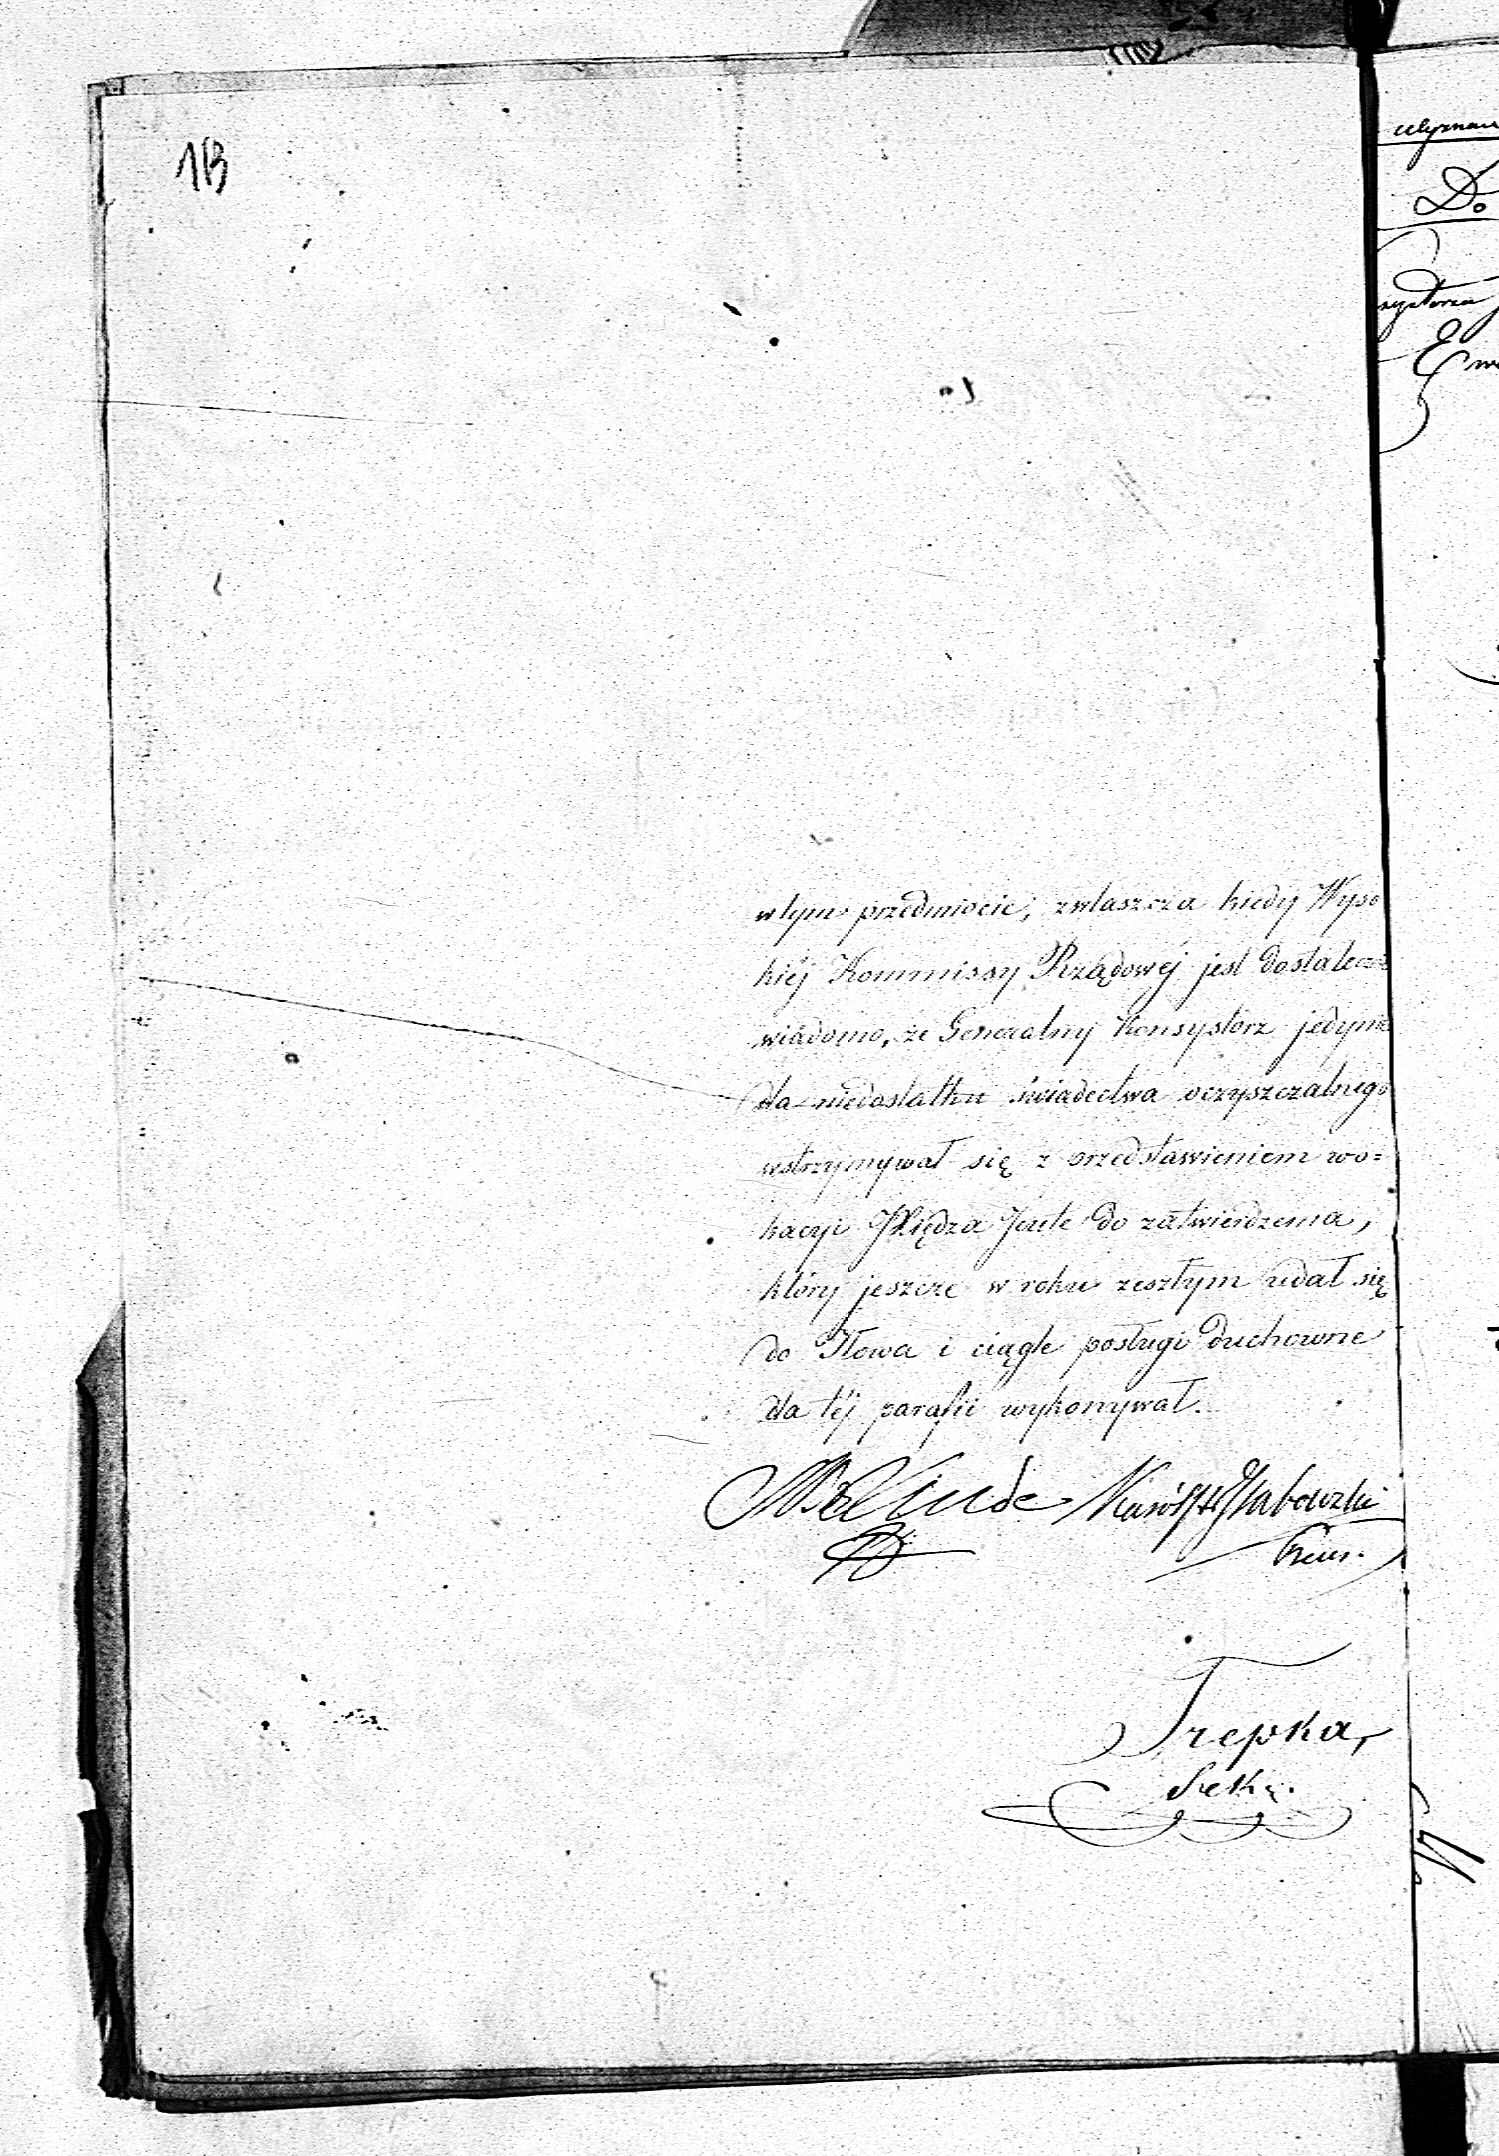 13
w tym przedmiocie, zwłaszcza kiedy Wyso
kiéj Kommissy Rządowéj jest dostatecznie
wiadomo, że Generalny Konsystorz jedynie
dla niedostatku świadectwa oczyszczalnego
wstrzymywał się z przedstawieniem wo=
kacyi Xiędza Jente do zatwierdzenia,
który jeszcze w roku zeszłym udał się
do Iłowa i ciągle posługi duchowne
dla téj parafii wykonywał.
Linde
Trepka,
Sekr.
Do